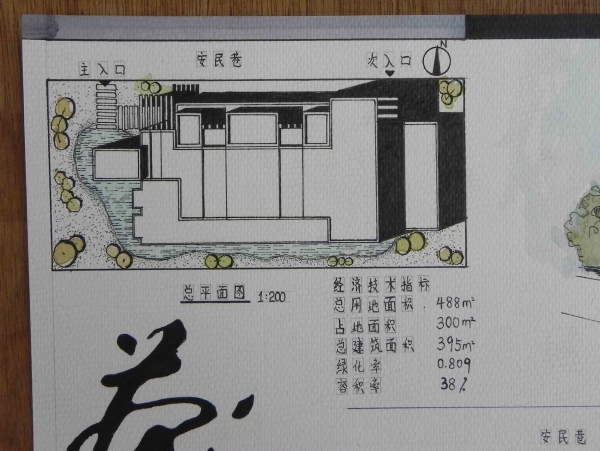 安民巷
主入口
次入口
N
总平面图 1:200
经济技术指标
总用地面积. 488m²
占地面积 300m²
总建筑面积 395m²
绿化率 0.809
容积率 38%
安民巷